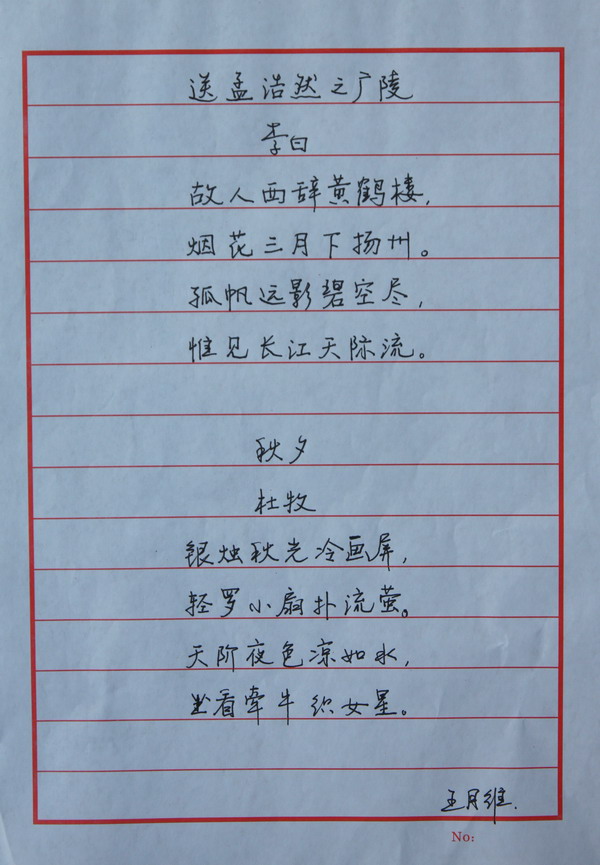 送孟浩然之广陵
李白
故人西辞黄鹤楼，
烟花三月下扬州。
孤帆远影碧空尽，
惟见长江天际流。
秋夕
杜牧
银烛秋光冷画屏，
轻罗小扇扑流萤。
天阶夜色凉如水，
坐看牵牛织女星。
王月维.
No: